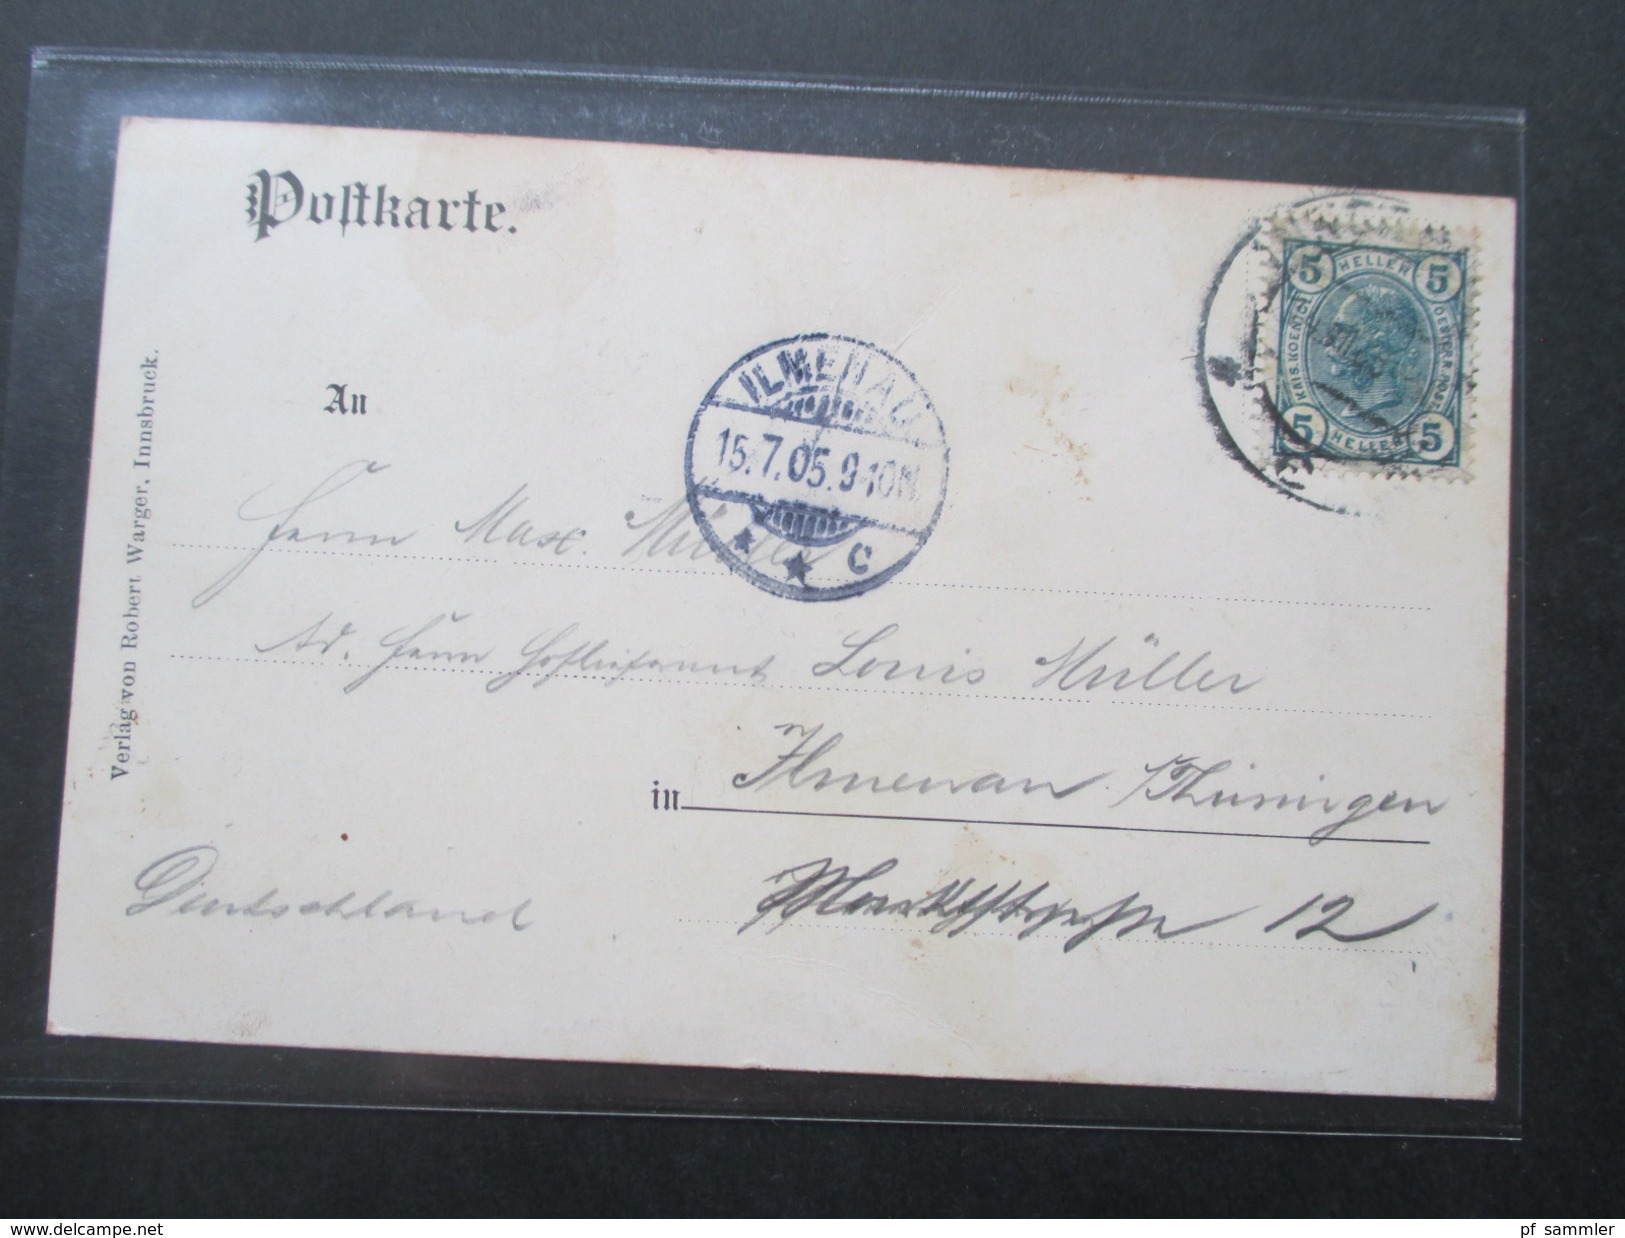 Postkarte.
5 HELLER 5
KAIS. KOENIGL.
OESTERR. POST.
5 HELLER 5
An
ILMENAU
15.7.05.9-10N.
* * C
Herrn Max. Müller
Ad. Herrn Hoflieferant Louis Müller
in Ilmenau / Thüringen
Marktstraße 12
Deutschland
Verlag von Robert Warger, Innsbruck.
www.delcampe.net
pf_sammler